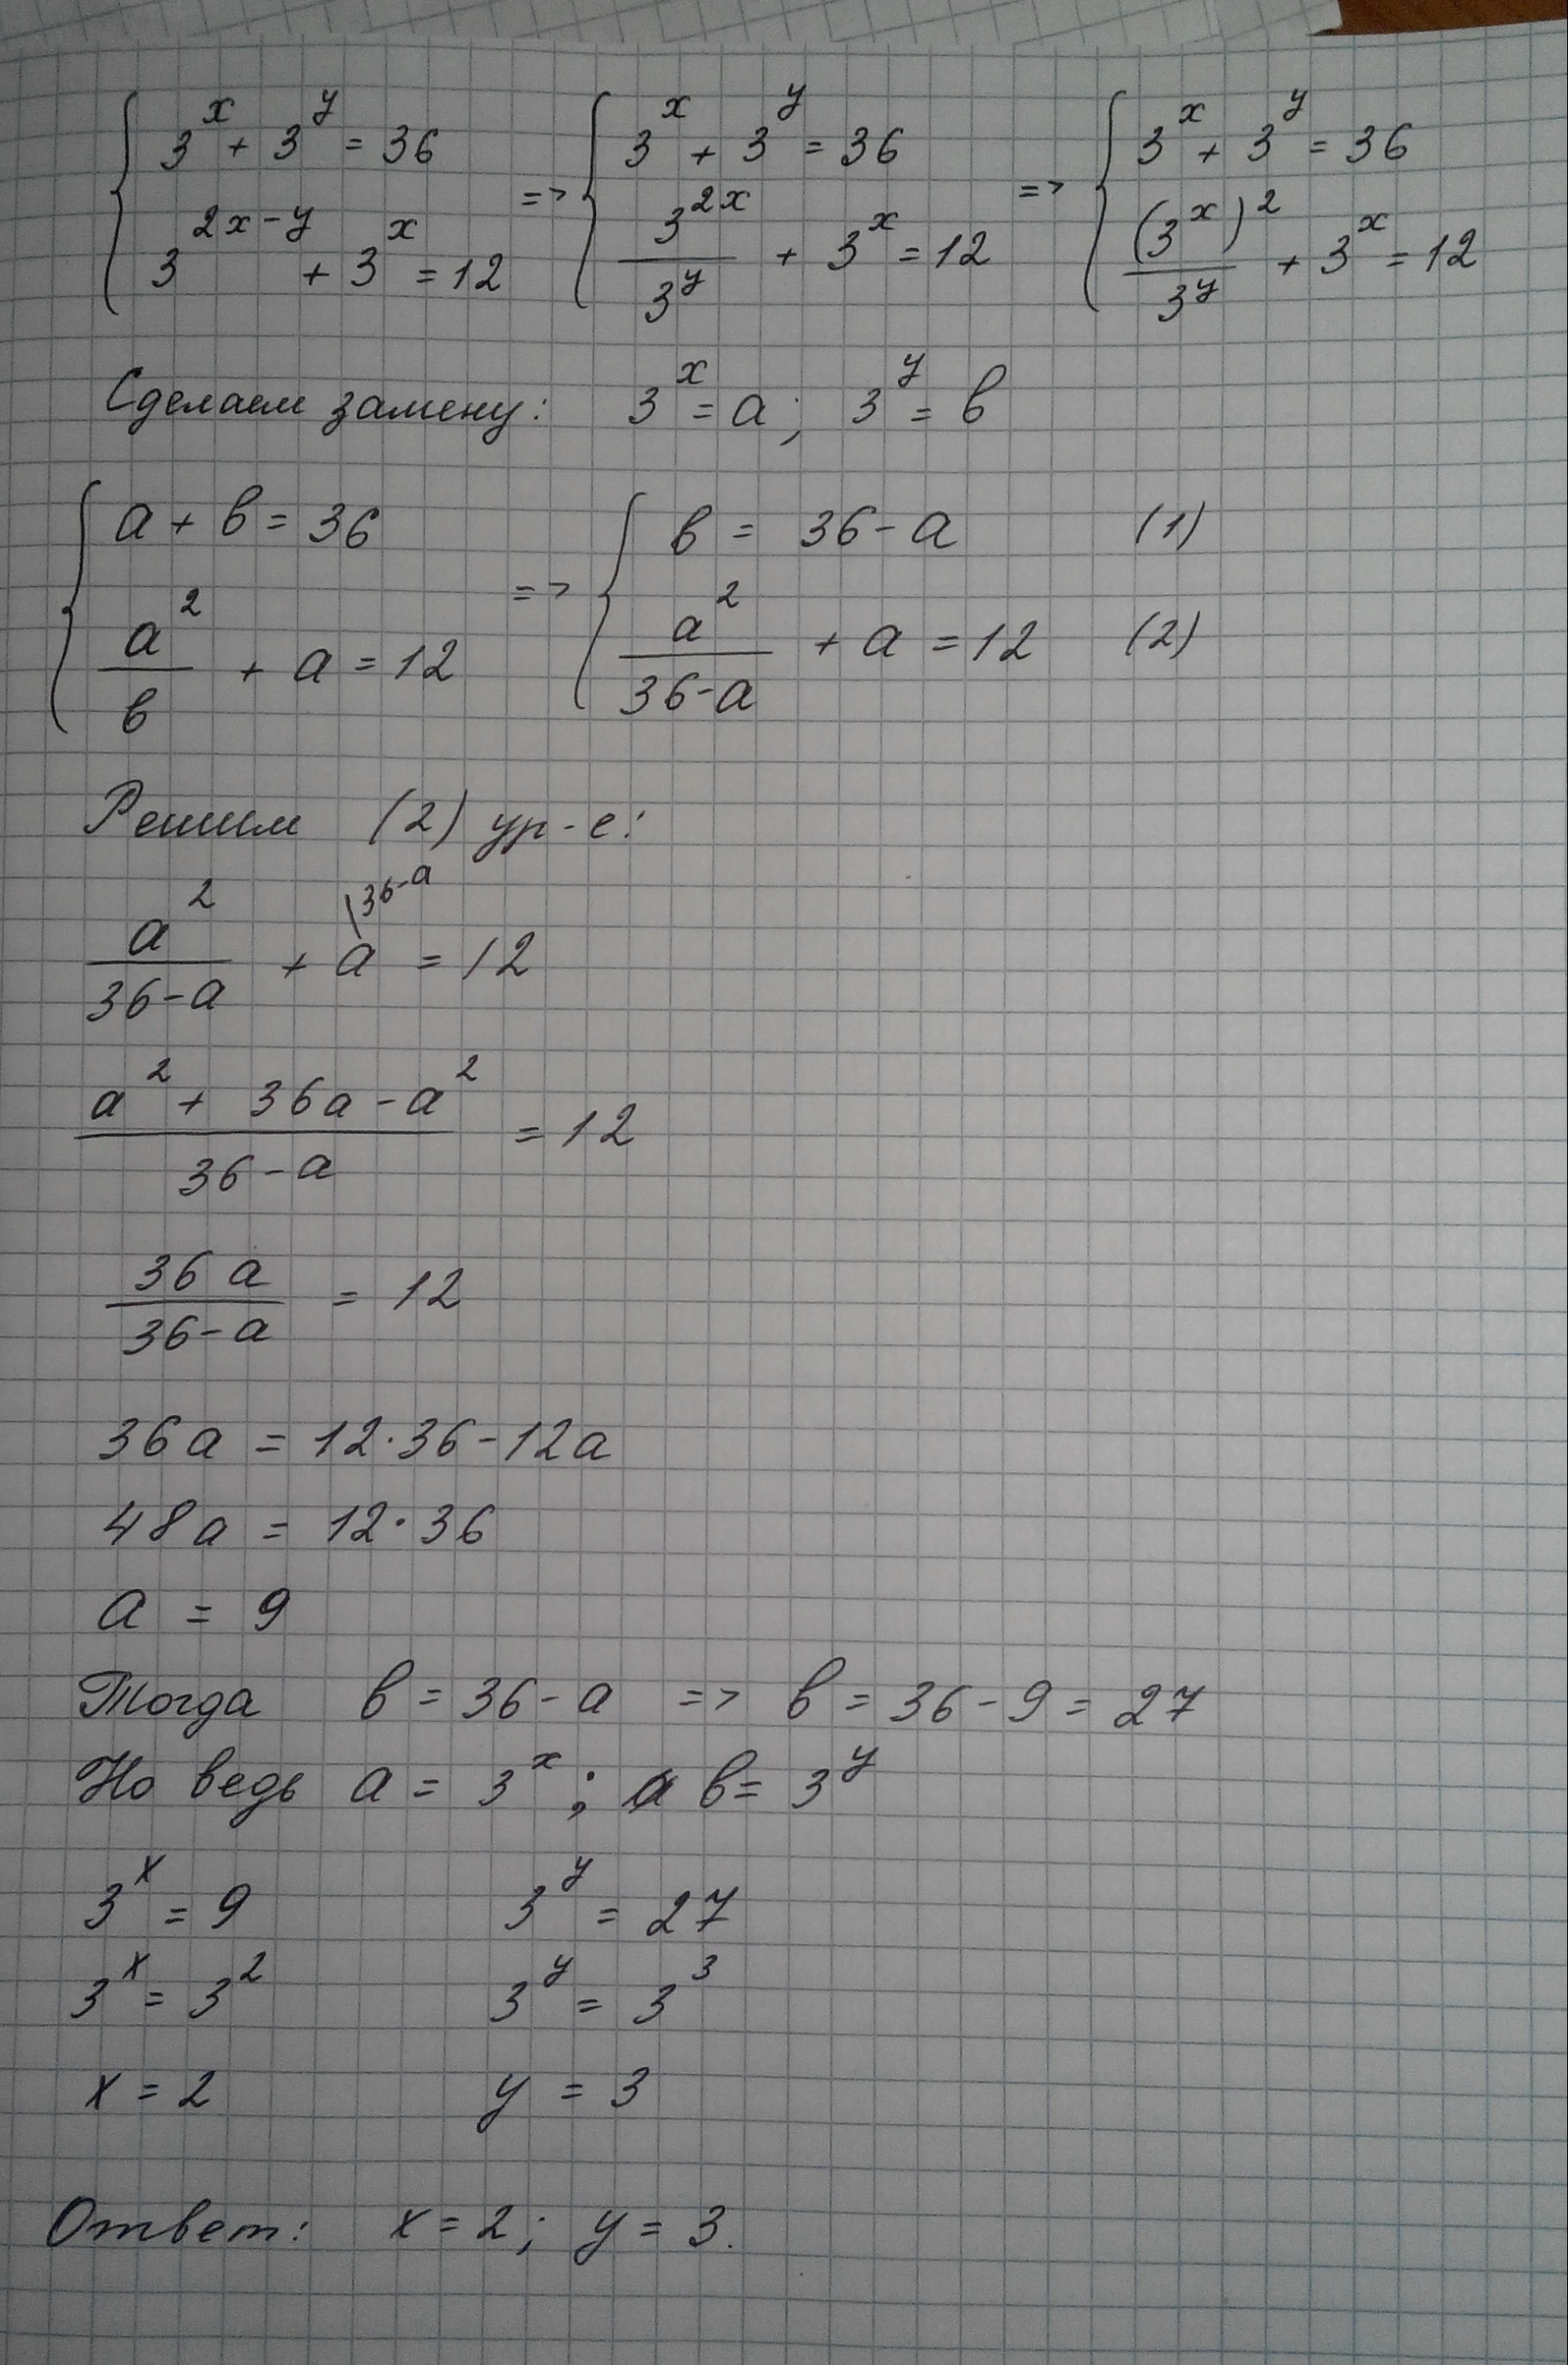 { 3^x + 3^y = 36 => { 3^x + 3^y = 36 => { 3^x + 3^y = 36
3^(2x-y) + 3^x = 12 3^(2x)/3^y + 3^x = 12 (3^x)^2/3^y + 3^x = 12
Сделаем замену: 3^x = a; 3^y = в
{ a + в = 36 => { в = 36 - a (1)
a^2/в + a = 12 a^2/(36-a) + a = 12 (2)
Решим (2) ур-е:
a^2/(36-a) + a \36-a = 12
(a^2 + 36a - a^2)/(36-a) = 12
36a/(36-a) = 12
36a = 12·36 - 12a
48a = 12·36
a = 9
Тогда в = 36 - a => в = 36 - 9 = 27
Но ведь a = 3^x; а в = 3^y
3^x = 9 3^y = 27
3^x = 3^2 3^y = 3^3
x = 2 y = 3
Ответ: x = 2; y = 3.